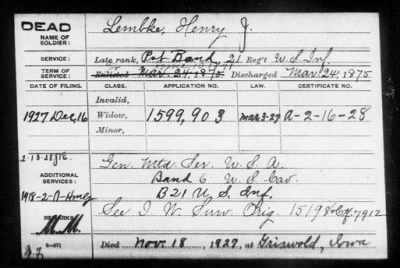 DEAD
NAME OF SOLDIER: Lembke, Henry J.
SERVICE: Late rank, Pvt Band, 21 Reg't U.S. Inf.
TERM OF SERVICE: Enlisted Mar. 24, 1870 Discharged Mar. 24, 1875
DATE OF FILING. CLASS. APPLICATION NO. LAW. CERTIFICATE NO.
Invalid,
1927 Dec, 16 Widow, 1,599,903 Mar 3-27 A-2-16-28
Minor,
ADDITIONAL SERVICES:
Gen. Mtd Ser. U.S.A.
Band 6 U.S. Cav.
B 21 U.S. Inf.
See I. W. Surv. Orig. 15198
REMARKS:
Died Nov. 18, 1927, at Griswold, Iowa